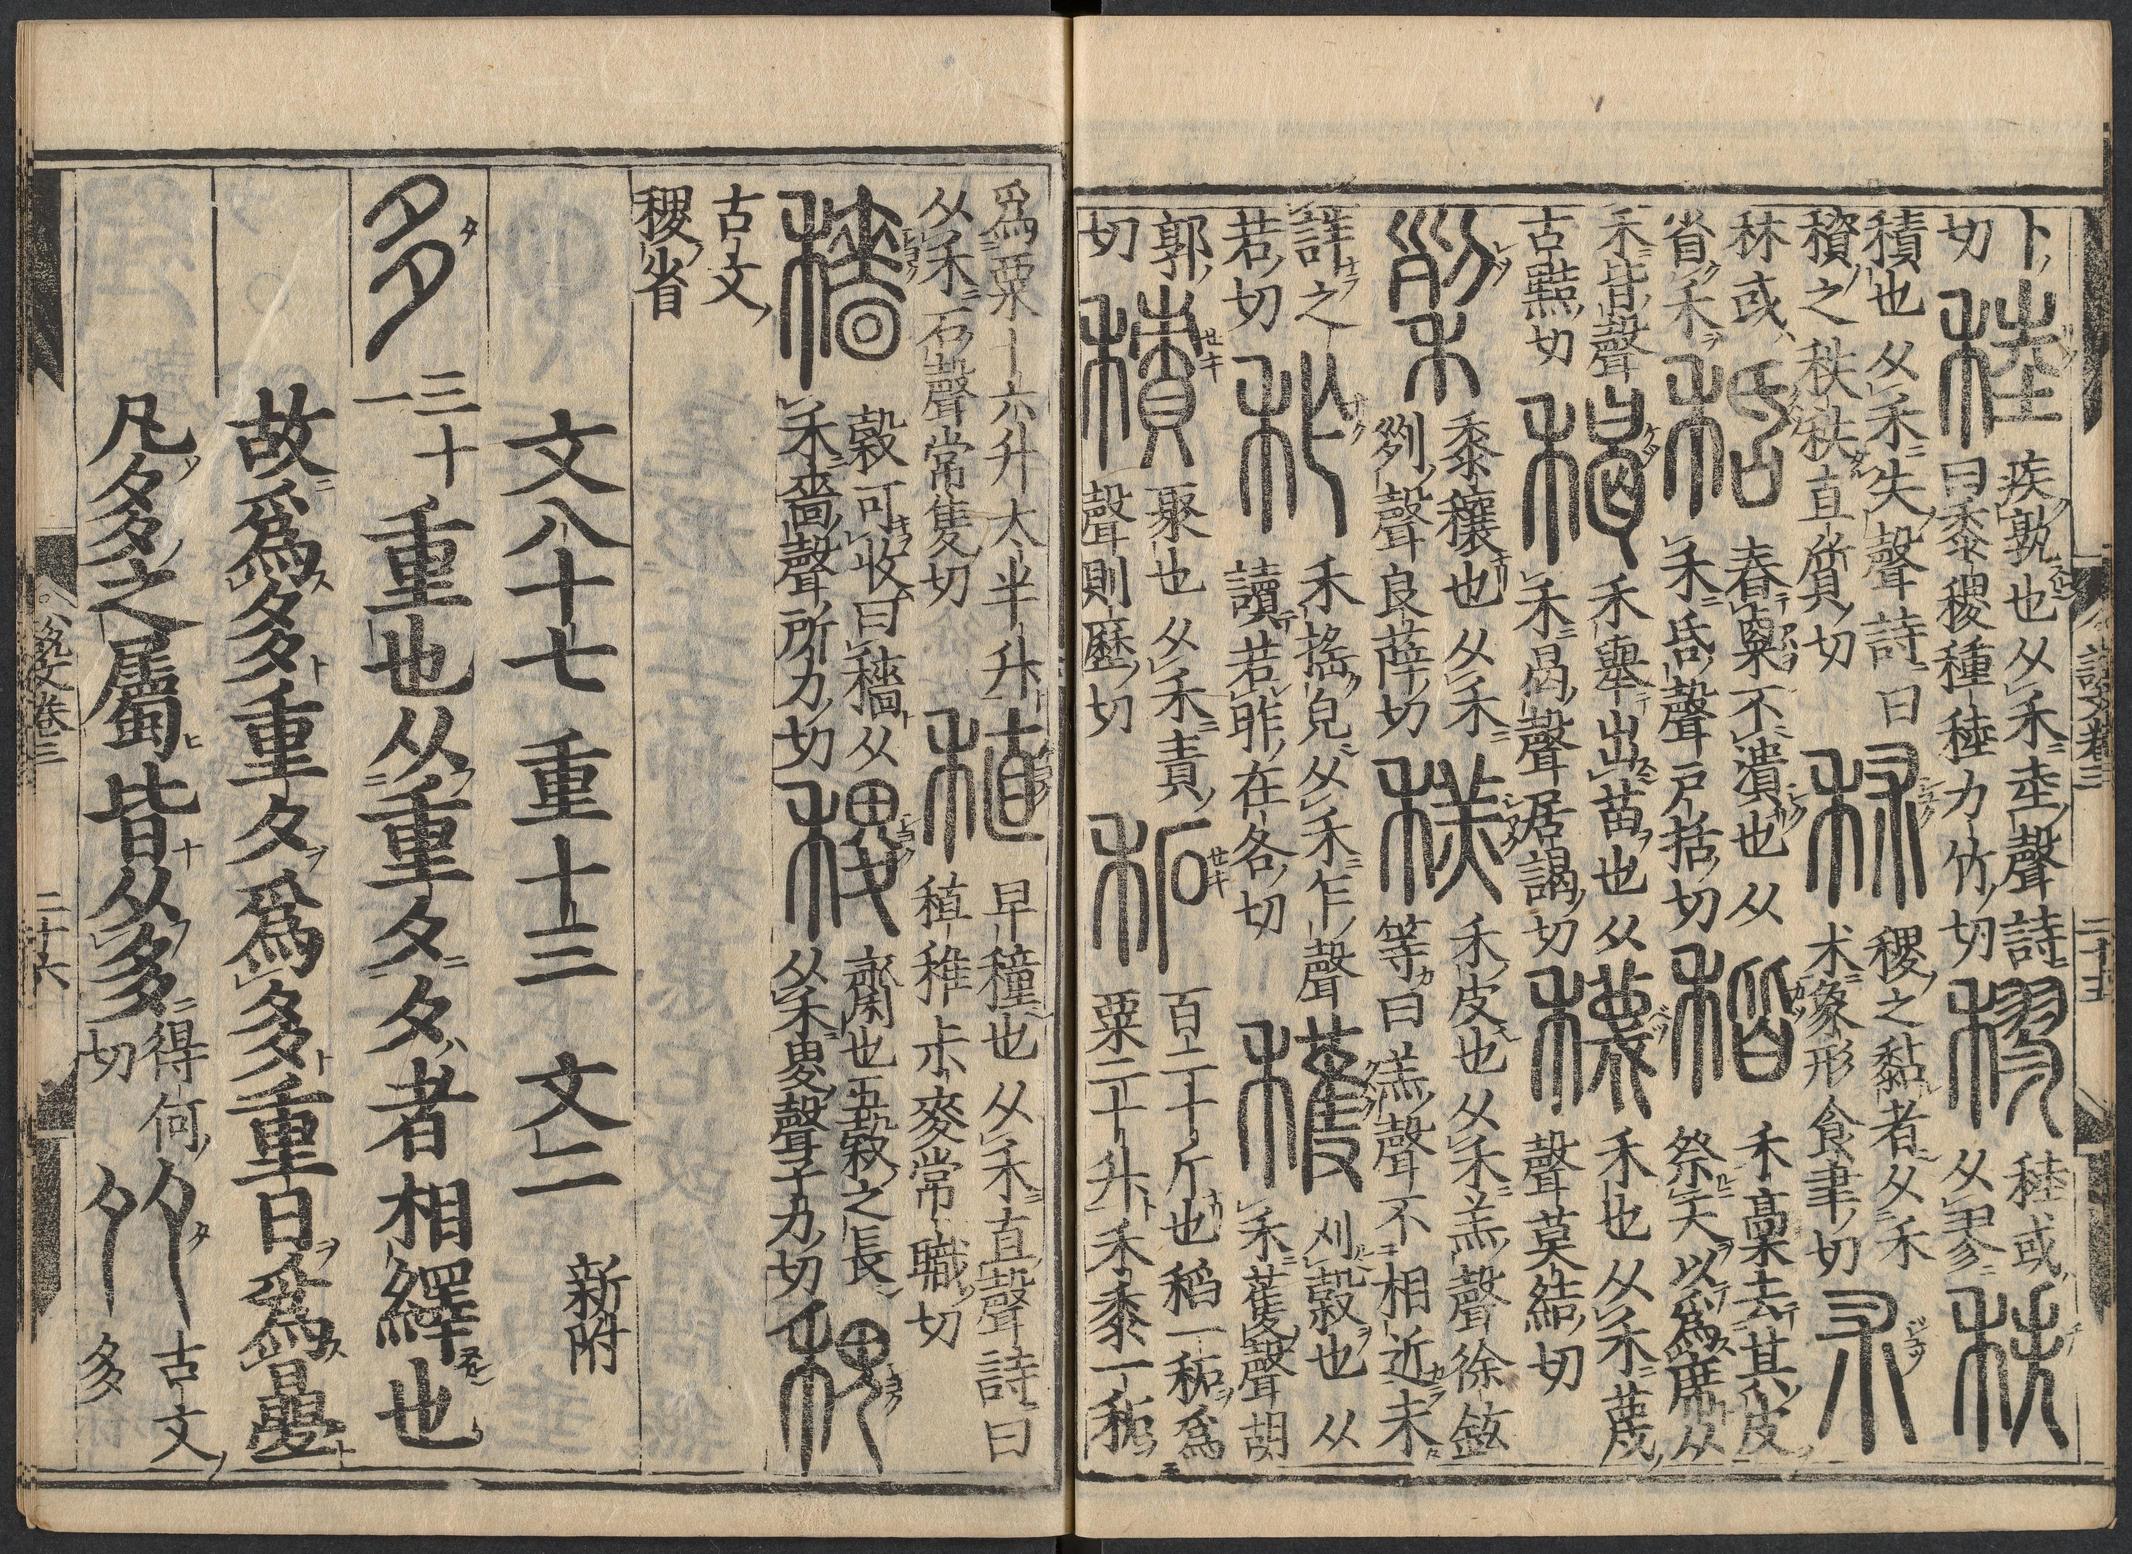 卜切 稑 疾孰也从禾坴聲詩曰黍稷種稑力竹切 穋 稑或从翏 秩
積也从禾失聲詩曰䅩之秩秩直質切 秫 稷之黏者从禾朮象形食聿切 朮
秫或省禾 𥞴 舂粟不潰也从禾𠯑聲戶括切 稭 禾稾去其皮祭天以爲席从
禾皆聲古黠切 䅥 禾舉出苗也从禾曷聲居謁切 𥣫 禾也从禾蔑聲莫結切
黍穰也从禾𠛱聲良薛切 禾皮也从禾羔聲徐鉉等曰羔聲不相近未
詳之若切 秨 禾搖皃从禾乍聲讀若昨在各切 穫 刈穀也从禾蒦聲胡
郭切 積 聚也从禾責聲則歷切 䄷 百二十斤也稻一䄷爲粟二十升禾黍一䄷
說文卷三 二十五
爲粟十六升大半升从禾石聲常隻切 稙 早穜也从禾直聲詩曰稙稚尗麥常職切
穡 穀可收曰穡从禾嗇聲所力切 稷 齋也五穀之長从禾畟聲子力切
古文稷省
文八十七 重十三 文二 新附
多 三十一 重也从重夕夕者相繹也
故爲多重夕爲多重日爲疊
凡多之屬皆从多 得何切 古文多
說文卷三 二十六